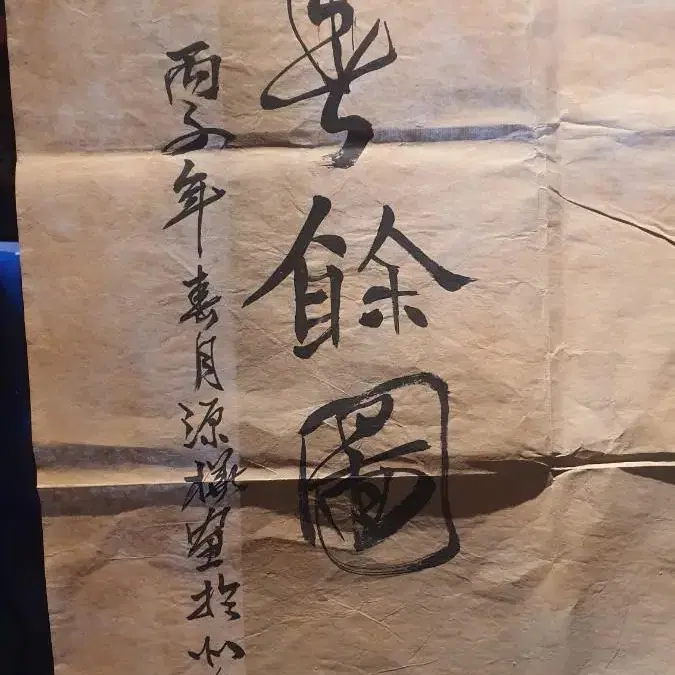 餘圖
丙子年春月源畫於北